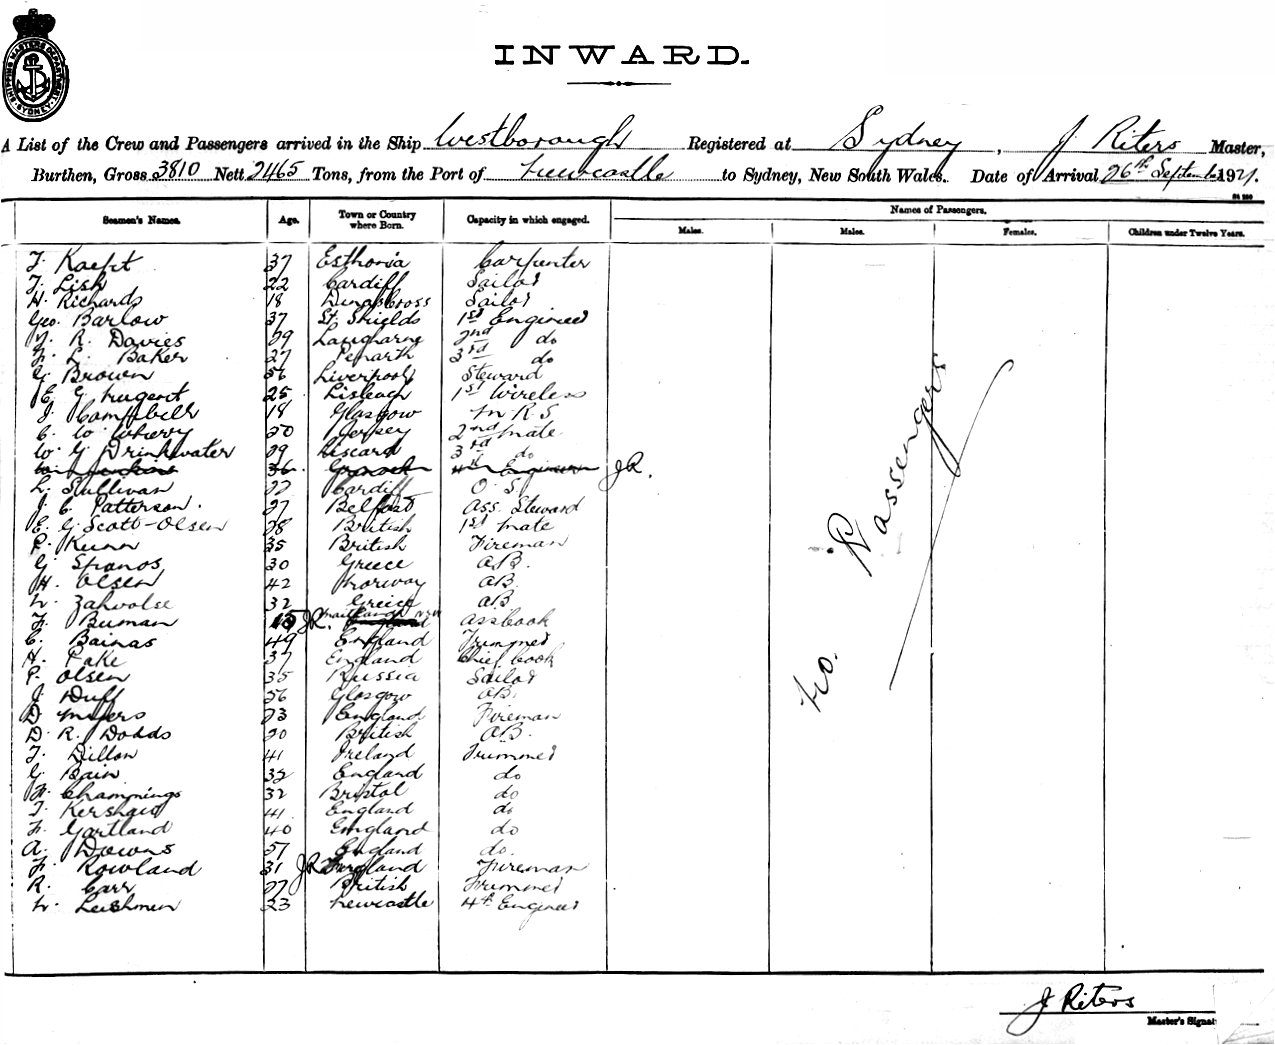 SHIPPING MASTERS DEPARTMENT SYDNEY
INWARD.
A List of the Crew and Passengers arrived in the Ship Westborough Registered at Sydney, J Riters Master,
Burthen, Gross 3810 Nett 2465 Tons, from the Port of Newcastle to Sydney, New South Wales. Date of Arrival 26th September 1921.
Seamen's Names. Age. Town or Country where Born. Capacity in which engaged. Names of Passengers.
Males. Males. Females. Children under Twelve Years.
37 Esthonia Carpenter
22 Cardiff Sailor
H. Richards 18 Sailor
Geo. Barlow 37 St. Shields 1st Engineer
R. Davies 29 Laugharne 2nd do
L. Baker 27 Penarth 3rd do
G Brown 56 Liverpool Steward
E G Nugent 25 1st Wireless
J Campbell 18 Glasgow
C. W. Wherry 20 Jersey 2nd Mate
W. G Drinkwater 29 Liscard 3rd do
36 4th Engineer JR.
L. Sullivan 22 Cardiff O S
J. C Patterson. 27 Belfast Ass. Steward
E. G Scott-Olsen 28 British 1st Mate
P. 35 British Fireman
G Spanos 30 Greece AB.
H. Olsen 42 Norway AB
32 Greece AB
Buman 15 JR. Maitland NSW England Asscook
C. Bainas 49 England Trimmer
H. Pake 37 England Chief Cook
P. Olsen 35 Russia Sailor
J Duff 56 Glasgow AB.
D Myers 23 England Fireman
D. R. Dodds 20 British AB.
T. Dillon 41 Ireland Trimmer
G Bain 32 England do
Champnings 32 Bristol do
T. Kershaw 41 England do
Gartland 40 England do
A. Downs 57 England do
Rowland 31 JR England Fireman
R. Carr 27 British Trimmer
Leishman 23 Newcastle 4th Engineer
No. Passengers
J Riters
Master's Signat